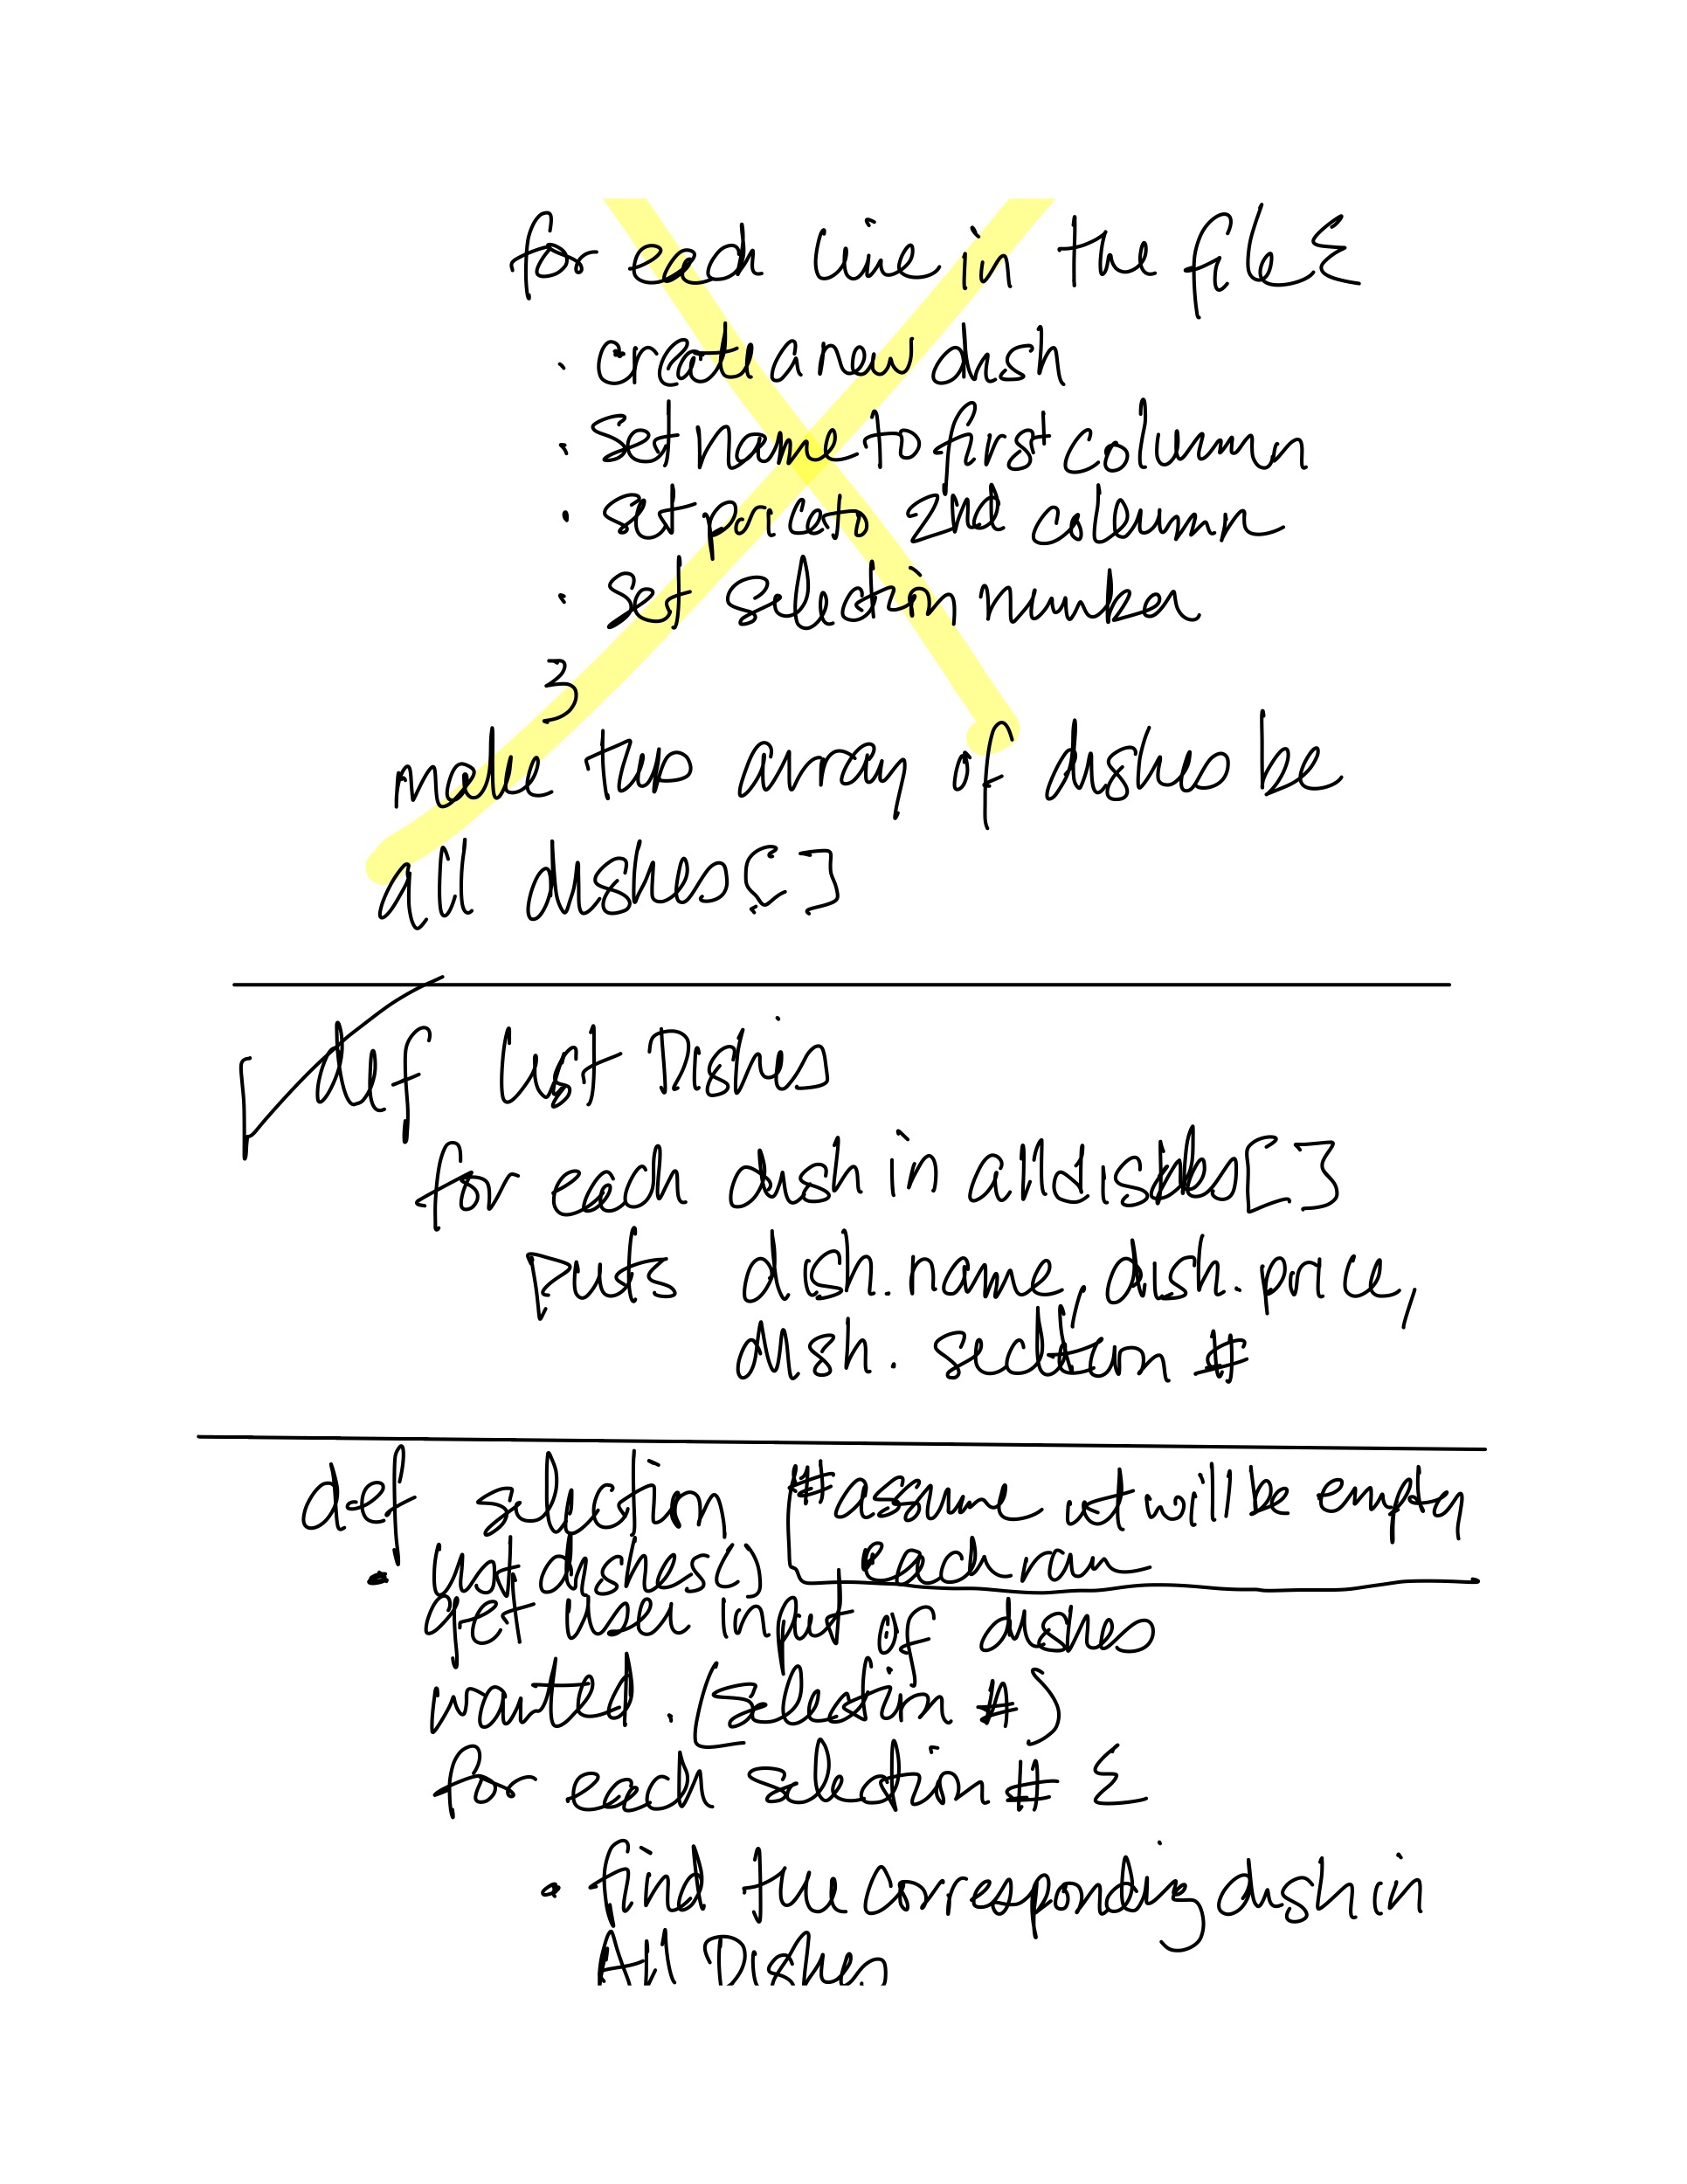 for each line in the file {
· create a new dish
· set name to first column
· set price to 2nd column
· set selection number
}
make this array of dishes be
all dishes[]
def list Dishes
for each dish in alldishes[]
puts dish.name, dish.price,
dish. selection #
def selection #assume it will be empty
• get dishes() each run
get user input of dishes
wanted. (selection #)
for each selection # {
• find the corresponding dish in
All Dishes